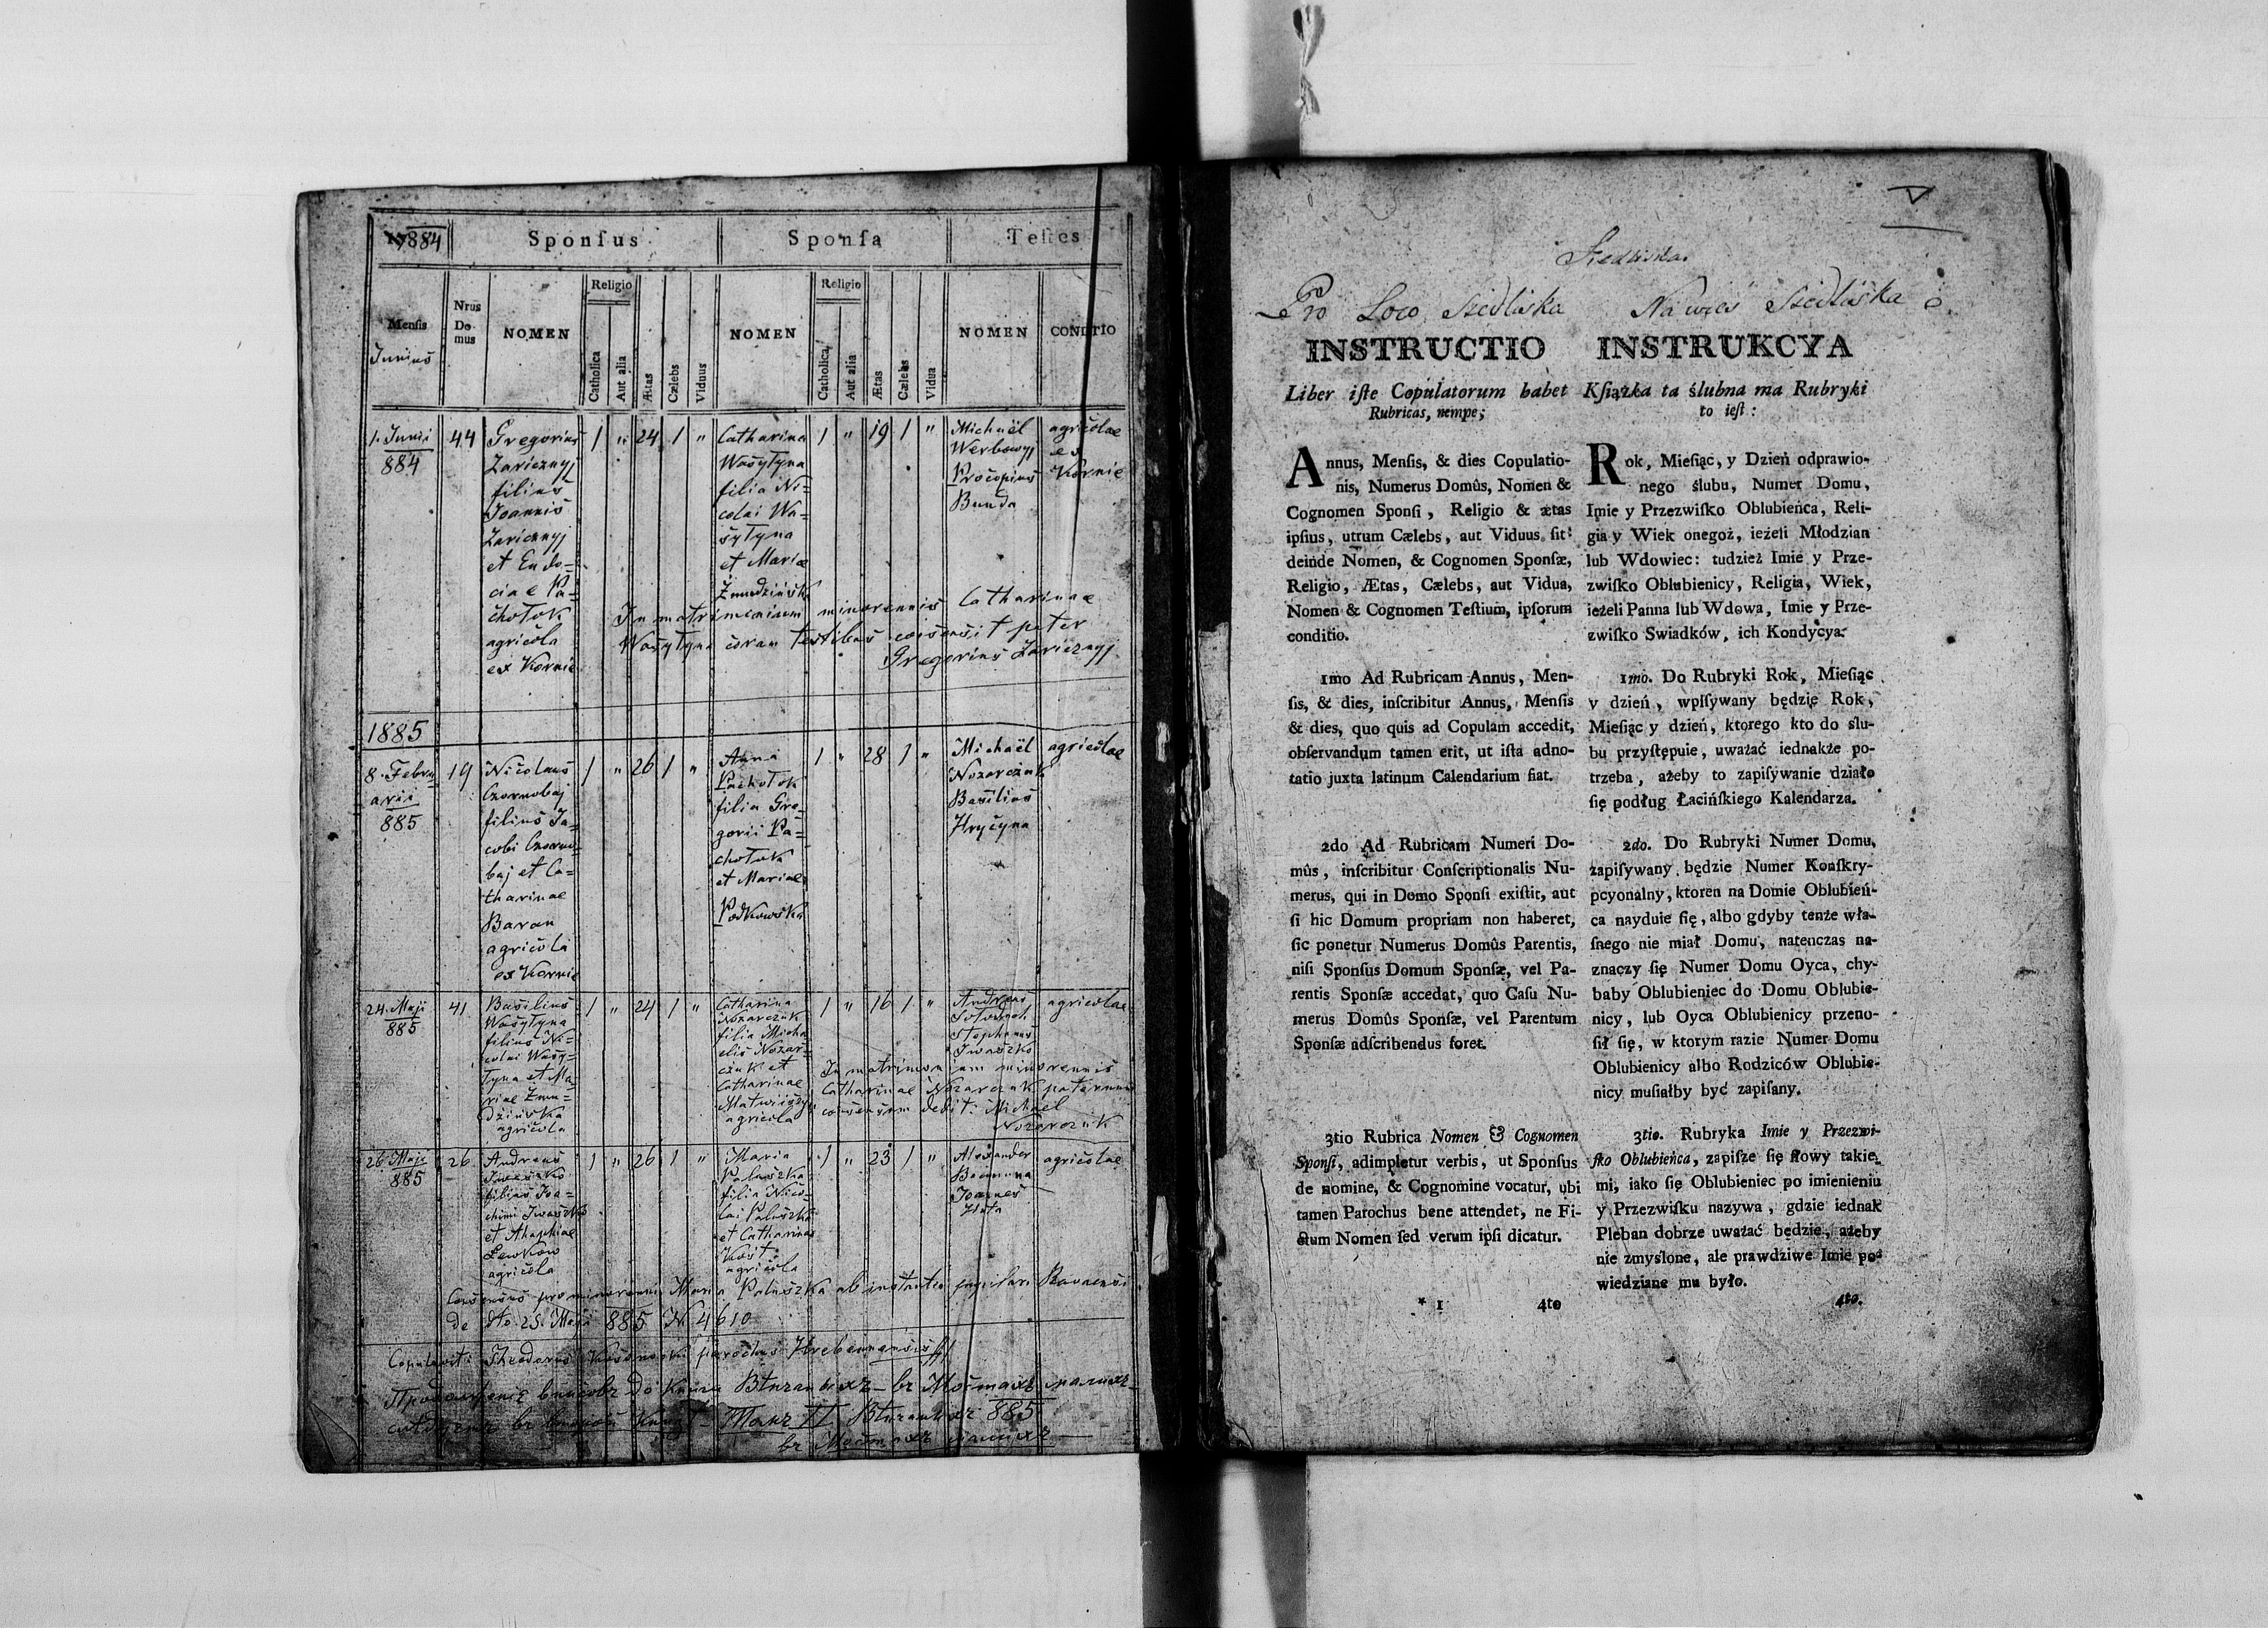 1884
Sponſus
Sponſa
Teſtes
Menſis
Junius
Nrus
Do-
mus
NOMEN
Religio
Catholica
Aut alia
Ætas
Cælebs
Viduus
NOMEN
Religio
Catholica
Aut alia
Ætas
Cælebs
Vidua
NOMEN
CONDITIO
1. Junii
884
44
Gregorius
Zaricznyj
filius
Joannis
Zaricznyj
et Eudo-
ciae Pa-
chotok
agricola
ex Kornie
1 " 24 1 "
Catharina
Wasyłyna
filia Ni-
colai Wa-
syłyna
et Mariae
Żmudzińska
1 " 19 1 "
Michaël
Werbowyj
Procopius
Bunda
agricolae
ex
Kornie
In matrimonium minorennis Catharinae
Wasyłyna coram testibus consensit pater
Gregorius Zaricznyj
1885
8. Febru
arii
885
19
Nicolaus
Czornobaj
filius Ja-
cobi Czorno-
baj et Ca-
tharinae
Baran
agricola
ex Kornie
1 " 26 1 "
Anna
Pachotok
filia Gre-
gorii Pa-
chotok
et Mariae
Podkowska
1 " 28 1 "
Michaël
Nozarczuk
Basilius
Hrycyna
agricolae
24. Maji
885
41
Basilius
Wasyłyna
filius Ni-
colai Wasy-
łyna et Ma-
riae Żmu-
dzińska
agricola
1 " 24 1 "
Catharina
Nozarczuk
filia Micha
elis Nozar-
czuk et
Catharinae
agricola
1 " 16 1 "
Andreas
Stephanus
Iwaszko
agricolae
In matrimonium minorennis
Catharinae Nozarczuk paternum
consensum dedit: Michaël
Nozarczuk
26. Maji
885
26
Andreas
Iwaszko
filius Joa-
chimi Iwaszko
et Ahaphiae
Lewkow
agricola
1 " 26 1 "
Maria
Paluszka
filia Nico-
lai Paluszka
et Catharinae
Kost
agricola
1 " 23 1 "
Alexander
Joannes
Huta
agricolae
Consensus pro minorenni Maria Paluszka ab instantia pupilari Ravaensi
de dto 25. Maji 885 N. 4610
Copulavit: Theodorus parochus Hrebennensis
885
V
Siedliska.
Pro Loco Siedliska
Na wieś Siedliska
INSTRUCTIO
Liber iſte Copulatorum habet
Rubricas, nempe;
Annus, Menſis, & dies Copulatio-
nis, Numerus Domûs, Nomen &
Cognomen Sponſi, Religio & ætas
ipſius, utrum Cælebs, aut Viduus ſit:
deinde Nomen, & Cognomen Sponſæ,
Religio, Ætas, Cælebs, aut Vidua,
Nomen & Cognomen Teſtium, ipſorum
conditio.
1mo Ad Rubricam Annus, Men-
ſis, & dies, inſcribitur Annus, Menſis
& dies, quo quis ad Copulam accedit,
obſervandum tamen erit, ut iſta adno-
tatio juxta latinum Calendarium fiat.
2do Ad Rubricam Numeri Do-
mûs, inſcribitur Conſcriptionalis Nu-
merus, qui in Domo Sponſi exiſtit, aut
ſi hic Domum propriam non haberet,
ſic ponetur Numerus Domûs Parentis,
niſi Sponſus Domum Sponſæ, vel Pa-
rentis Sponſæ accedat, quo Caſu Nu-
merus Domûs Sponſæ, vel Parentum
Sponſæ adſcribendus foret.
3tio Rubrica Nomen & Cognomen
Sponſi, adimpletur verbis, ut Sponſus
de nomine, & Cognomine vocatur, ubi
tamen Parochus bene attendet, ne Fi-
ctum Nomen ſed verum ipſi dicatur.
* 1
4to
INSTRUKCYA
Kſiążka ta ślubna ma Rubryki
to ieſt:
Rok, Mieſiąc, y Dzień odprawio-
nego ślubu, Numer Domu,
Imie y Przezwiſko Oblubieńca, Reli-
gia y Wiek onegoż, ieżeli Młodzian
lub Wdowiec: tudzież Imie y Prze-
zwiſko Oblubienicy, Religia, Wiek,
ieżeli Panna lub Wdowa, Imie y Prze-
zwiſko Swiadków, ich Kondycya.
1mo. Do Rubryki Rok, Mieſiąc
y dzień, wpiſywany będzie Rok,
Mieſiąc y dzień, ktorego kto do ślu-
bu przyſtępuie, uważać iednakże po-
trzeba, ażeby to zapiſywanie działo
się podług Łacińſkiego Kalendarza.
2do. Do Rubryki Numer Domu,
zapiſywany będzie Numer Konſkry-
pcyonalny, ktoren na Domie Oblubień-
ca nayduie ſię, albo gdyby tenże wła-
ſnego nie miał Domu, natenczas na-
znaczy ſię Numer Domu Oyca, chy-
baby Oblubieniec do Domu Oblubie-
nicy, lub Oyca Oblubienicy przeno-
ſił ſię, w ktorym razie Numer Domu
Oblubienicy albo Rodziców Oblubie-
nicy muſiałby być zapiſany.
3tio. Rubryka Imie y Przezwi-
ſko Oblubieńca, zapiſze ſię ſłowy takie-
mi, iako ſię Oblubieniec po imienieniu
y Przezwiſku nazywa, gdzie iednak
Pleban dobrze uważać będzie, ażeby
nie zmyslone, ale prawdziwe Imie po-
wiedziane mu było.
4to.